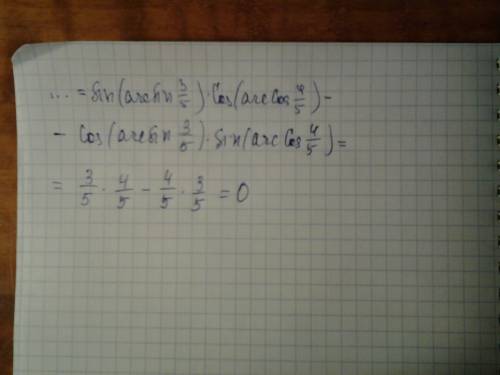 ... = Sin(arcsin 3/5) · Cos(arccos 4/5) -
- Cos(arcsin 3/5) · Sin(arc Cos 4/5) =
= 3/5 · 4/5 - 4/5 · 3/5 = 0